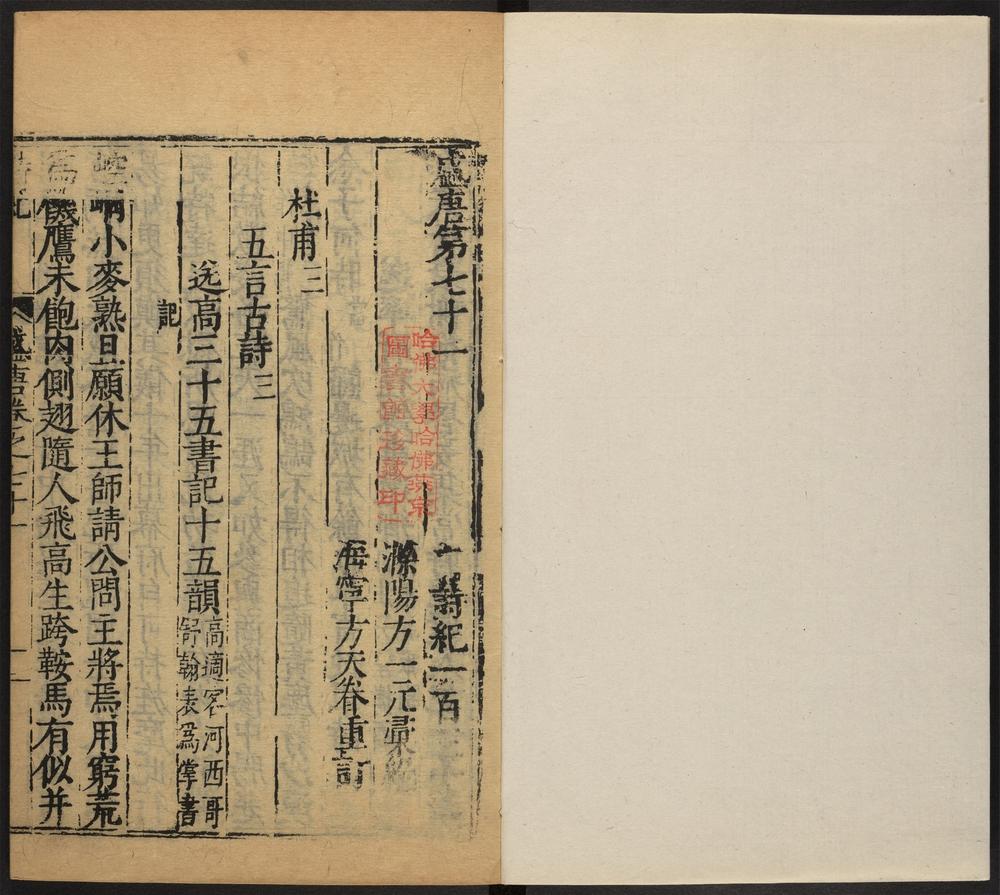 盛唐第七十一 詩紀一百
滁陽方一元彙
海寧方天眷重訂
杜甫三
五言古詩三
送高三十五書記十五韻高適客河西哥
舒翰表爲掌書
記
崆峒小麥熟且願休王師請公問主將焉用窮荒
爲饑鷹未飽肉側翅隨人飛高生跨鞍馬有似并
詩紀 盛唐卷之七十一 一
哈佛大學哈佛燕京
圖書館珍藏印